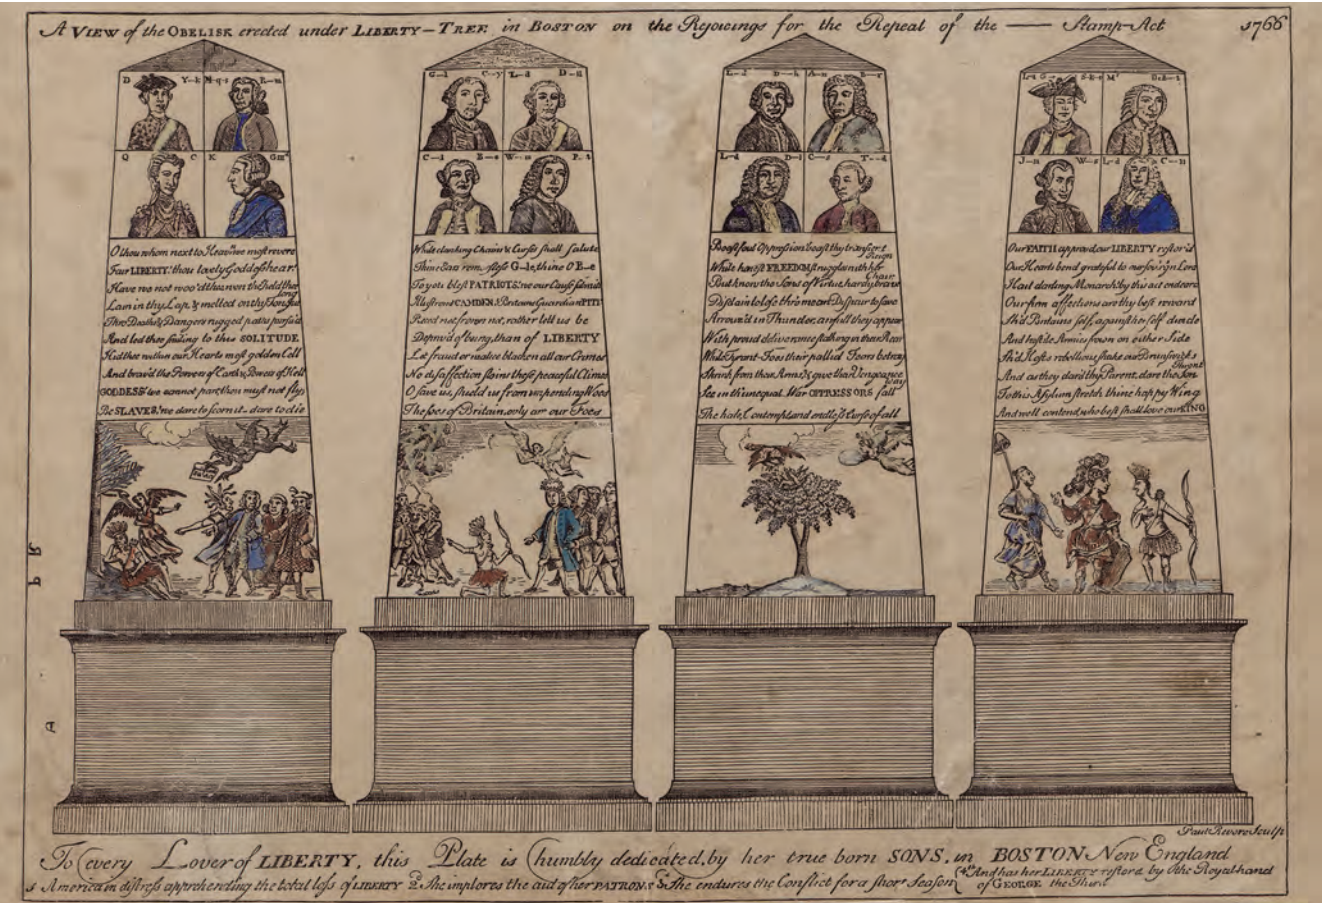 A VIEW of the OBELISK erected under LIBERTY-TREE in BOSTON on the Rejoicings for the Repeal of the —— Stamp-Act 1766
D Y—k M-q-s R—m
Q C K G III
O thou whom next to Heav'n we most revere
Fair LIBERTY! thou lovely Goddess hear!
Have we not woo'd thee, won thee, held thee long
Lain in thy Lap, & melted on thy Tongue
Thro Deaths & Dangers rugged paths pursu'd
And led thee smiling to this SOLITUDE
Hid thee within our Hearts most golden Cell
And brav'd the Powers of Earth & Powers of Hell
GODDESS! we cannot part, thou must not fly,
Be SLAVES! we dare to scorn it—dare to die
G—l C—y L—d D—
C—l B—e W—m P—t
While clanking Chains & Curses shall salute
Thine Ears remorseless G—le, thine O B—e
To you blest PATRIOTS, we our Cause submit
Illustrious CAMDEN, & Britains Guardian PITT
Recede not, frown not, rather let us be
Depriv'd of being, than of LIBERTY
Let fraud or malice blacken all our Crimes
No disaffection stains these peaceful Climes
O save us, shield us from impending Woes
The foes of Britain, only are our Foes
L—d D—h A—n B—r
L—d D—l C—s T—d
Boast foul Oppression, boast thy transient Reign
While honest FREEDOM struggles with her Chain
But know the Sons of Virtue, hardy brave
Disdain to lose thro' mean Despair to save
Arrous'd in Thunder, awfull they appear
With proud deliverance stalking in their Rear
While Tyrant-Foes their pallid Fears betray
Shrink from their Arms, & give their Vengeance way
See in th'unequal War OPPRESSORS fall
The hate, Contempt, and endless Curse of all
L—d G— S-k-e M
J—n W—s L—d C—n
Our FAITH approv'd, our LIBERTY restor'd
Our Hearts bend grateful to our sov'rign Lord
Hail darling Monarch! by this act endear'd
Our firm affections are thy best reward
Sh'd Britains self, against her self divide
And hostile Armies frown on either Side
Sh'd Hosts rebellious, shake our Brunswick's Throne
And as they dar'd thy Parent, dare the Son
To this Asylum stretch thine happy Wing
And we'll contend, who best shall love our KING
Paul Revere Sculp
To every Lover of LIBERTY, this Plate is humbly dedicated, by her true born SONS, in BOSTON New England
America in distress apprehending the total loss of LIBERTY 2d She implores the aid of her PATRONS 3d She endures the Conflict for a short Season 4th And has her LIBERTY restord by the Royal hand of GEORGE the Third